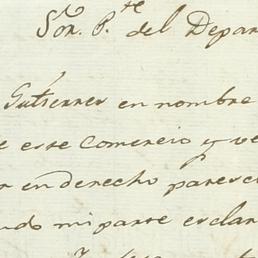 Sor. Pte del Depar
Gutierrez en nombre
e este Comercio y ve
r en derecho paresc
ndo mi parte esclar